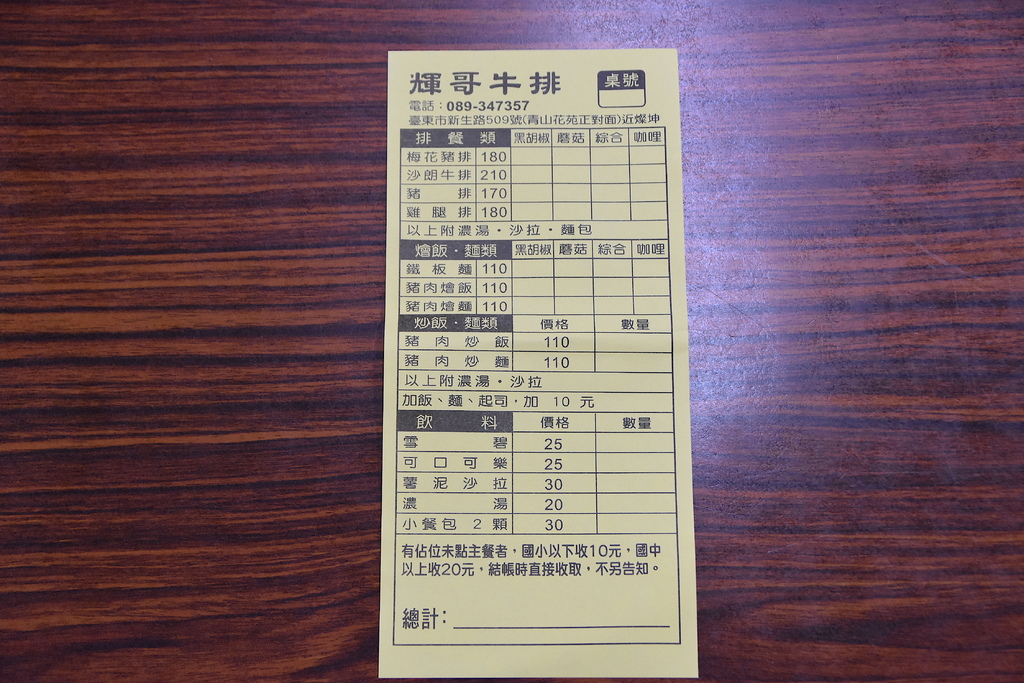 輝哥牛排 桌號
電話：089-347357
臺東市新生路509號(青山花苑正對面)近燦坤
排餐類 黑胡椒 蘑菇 綜合 咖哩
梅花豬排 180
沙朗牛排 210
豬排 170
雞腿排 180
以上附濃湯・沙拉・麵包
燴飯・麵類 黑胡椒 蘑菇 綜合 咖哩
鐵板麵 110
豬肉燴飯 110
豬肉燴麵 110
炒飯・麵類 價格 數量
豬肉炒飯 110
豬肉炒麵 110
以上附濃湯・沙拉
加飯、麵、起司，加 10 元
飲料 價格 數量
雪碧 25
可口可樂 25
薯泥沙拉 30
濃湯 20
小餐包2顆 30
有佔位未點主餐者，國小以下收10元，國中
以上收20元，結帳時直接收取，不另告知。
總計: